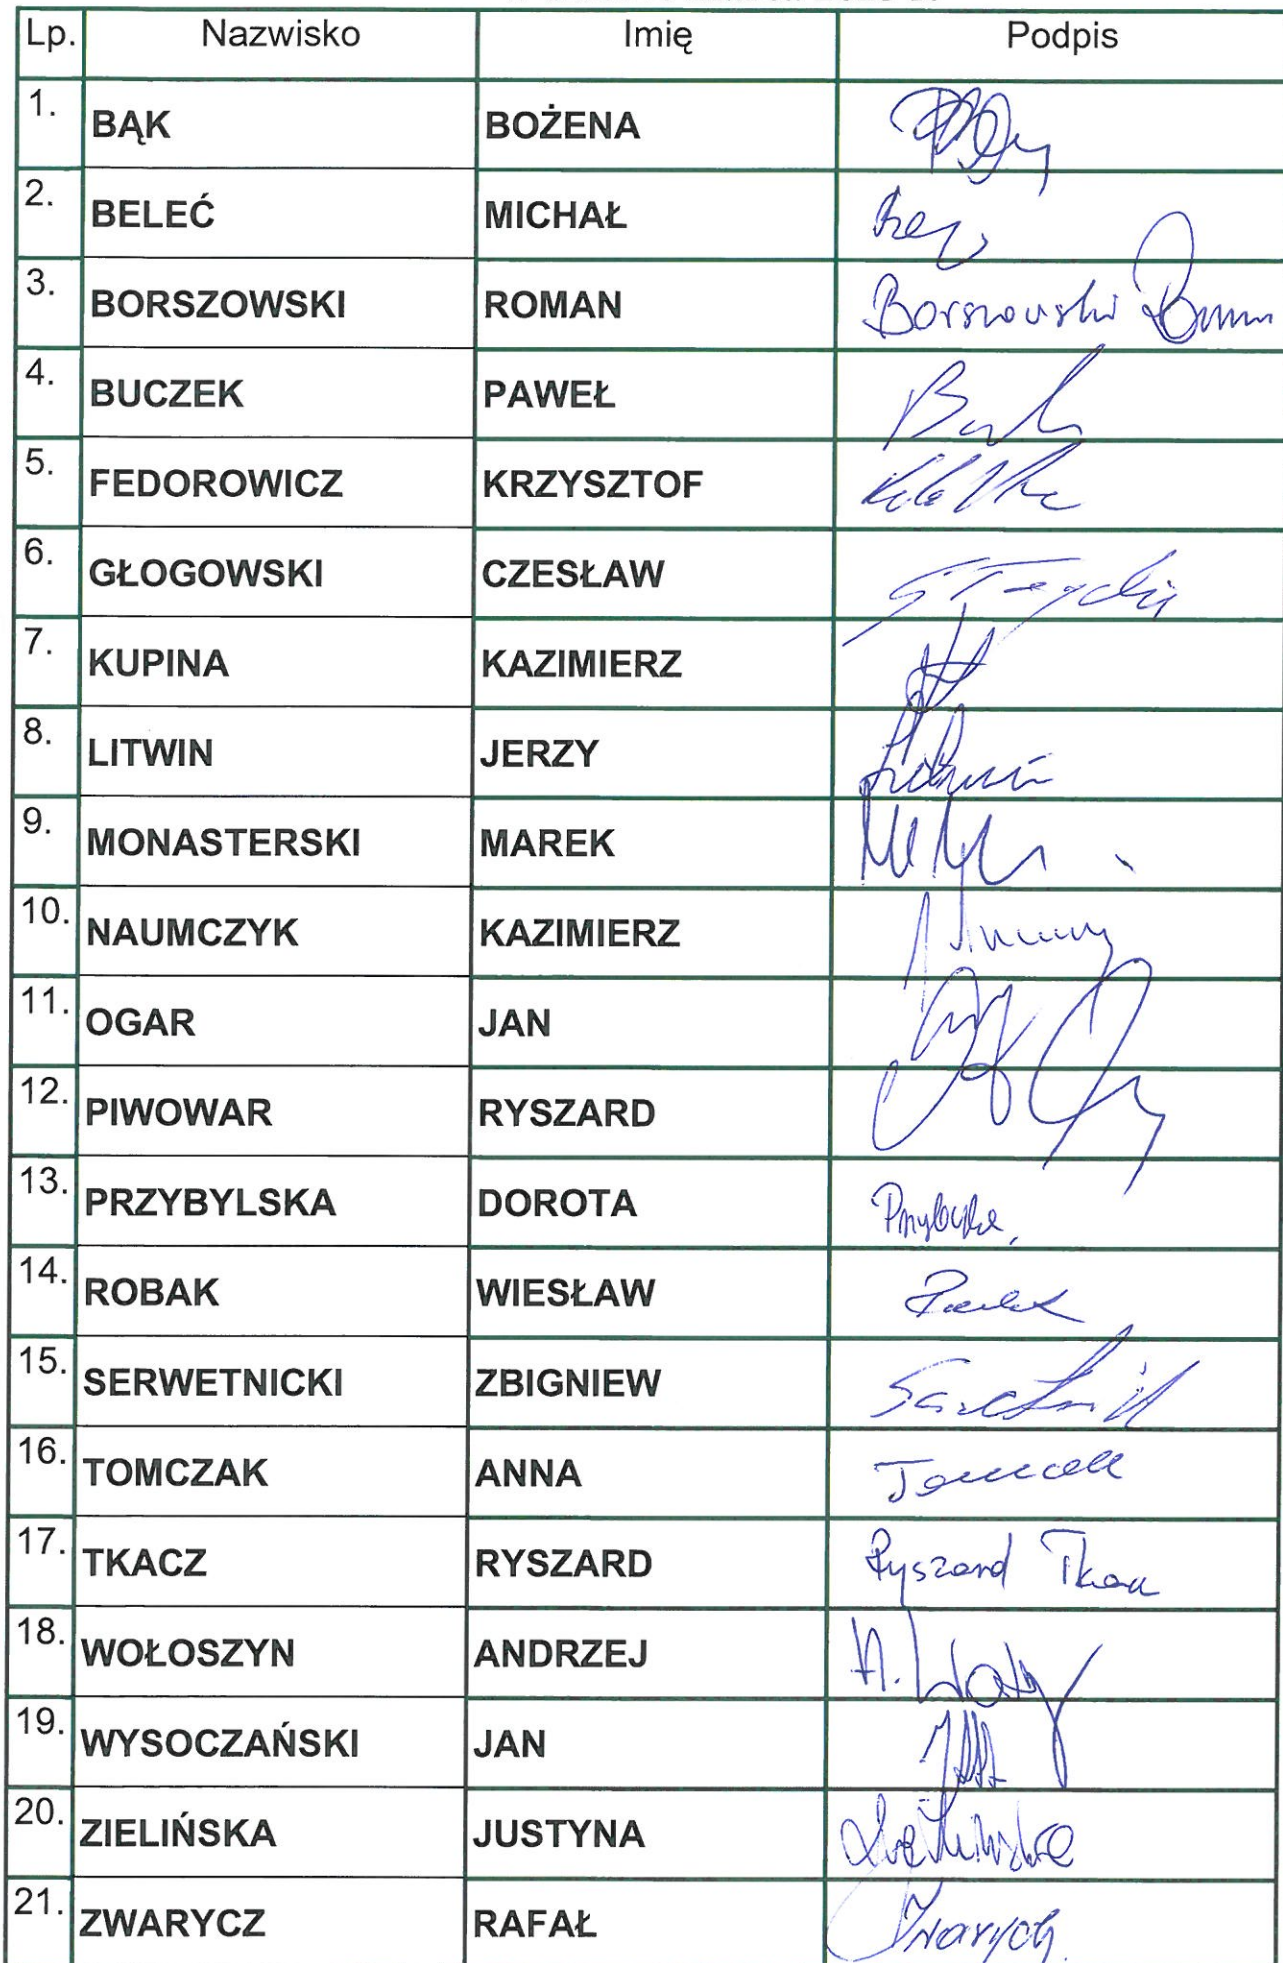 Lp. Nazwisko Imię Podpis
1. BĄK BOŻENA
2. BELEĆ MICHAŁ
3. BORSZOWSKI ROMAN Borszowski
4. BUCZEK PAWEŁ
5. FEDOROWICZ KRZYSZTOF
6. GŁOGOWSKI CZESŁAW
7. KUPINA KAZIMIERZ
8. LITWIN JERZY
9. MONASTERSKI MAREK
10. NAUMCZYK KAZIMIERZ
11. OGAR JAN
12. PIWOWAR RYSZARD
13. PRZYBYLSKA DOROTA
14. ROBAK WIESŁAW
15. SERWETNICKI ZBIGNIEW
16. TOMCZAK ANNA
17. TKACZ RYSZARD Ryszard Tkacz
18. WOŁOSZYN ANDRZEJ
19. WYSOCZAŃSKI JAN
20. ZIELIŃSKA JUSTYNA
21. ZWARYCZ RAFAŁ Zwarycz